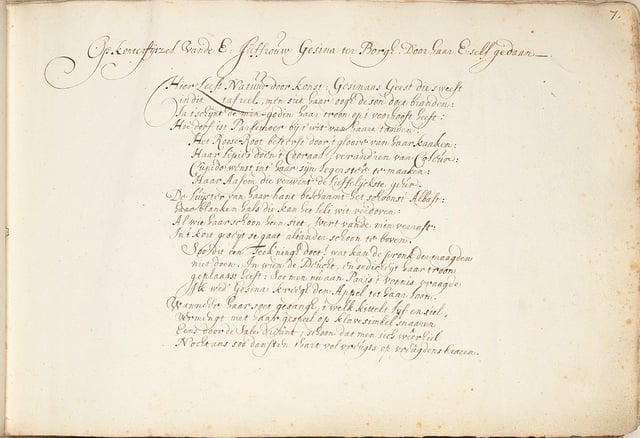 7.
Op konterfijtzel Vande E: Juffrouw Gesina ter Borgh Door haar E. self gedaan
Hier Leeft Natuur door konst: Gesinaas Geest die sweeft
in dit tafreel, men siet haar oogh de son doen branden:
Ja schijnt de min-goden haar troon op 't voorhooft heeft:
Hoe doof is Parlemoer bij 't wit van haare tanden:
Het Roose-Root besterft door 't gloors van haar kaaken:
Haar lipies doen 't Cooraal verandren van Coleur:
Cupido wenst in haar sijn legerstee te maaken:
Haar Aasem die verwint de lieffelijckste geur.
De luijster van haar hant beschaamt het schoonst Albast:
haar blanken hals die kan het leli wit verdoven:
Al wie haar schoon heen siet, wert vande min verrast:
In 't kort geseijt se gaat al ander schoon te boven.
Soo dit een Teek'ningh doet! wat kan de pronk der maagden
niet doen. In wien de Deucht, en sedicheijt haar troon
geplaatst heeft: Soo men nu aan Paris 't vonnis vraagde
Ick wed' Gesina kreegh den Appel tot haar loon.
Wanneer haar soet gesangh, 't welk kittelt lijf en siel,
vermengt met haar gespeel op klavesimbel snaaren
Eens door de Sale dichint; schoon dat men sich weerhiel
Nochtans soo danst en thart vol vreughts op vreughdens baaren.